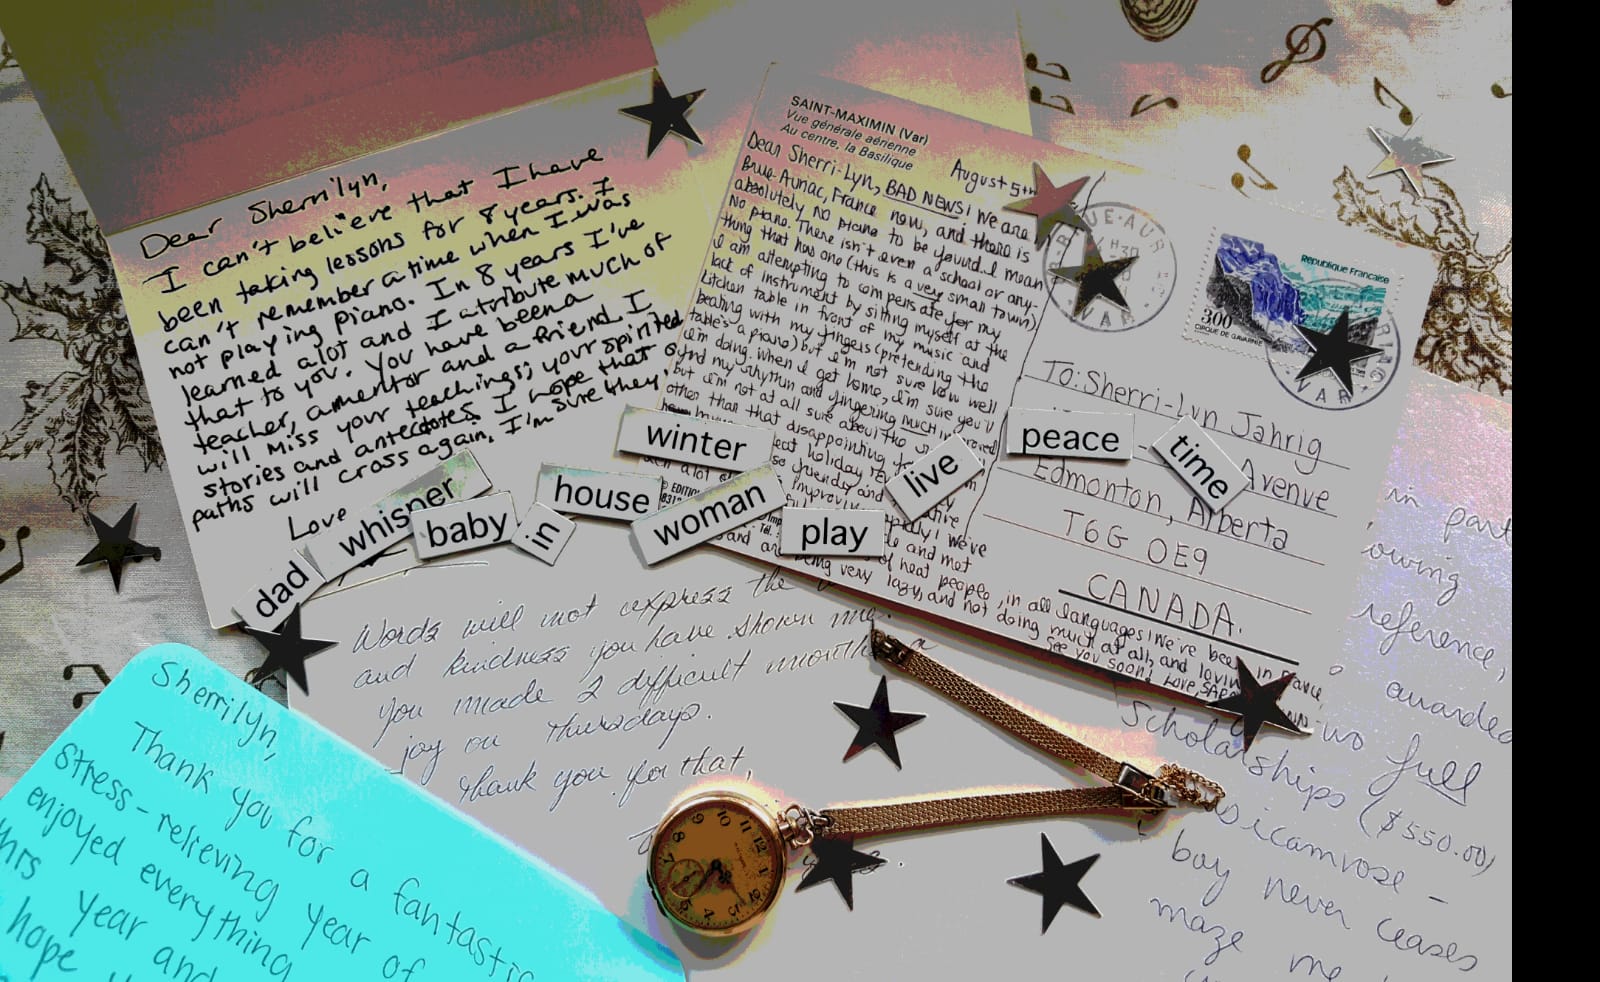 Dear Sherrilyn,
I can't believe that I have
been taking lessons for 8 years. I
can't remember a time when I was
not playing piano. In 8 years I've
learned alot and I atribute much of
that to you. You have been a
teacher, a mentor and a friend. I
will miss your teachings; your spirited
stories and antecdotes. I hope that o
paths will cross again, I'm sure they
Love
SAINT-MAXIMIN (Var)
Vue générale aérienne
Au centre, la Basilique
August 5th
Dear Sherri-Lyn, BAD NEWS! We are
Aunac, France now, and there is
absolutely no piano to be found. I mean
No piano. There isn't even a school or any-
thing that has one (this is a very small town)
I am attempting to compensate for my
lack of instrument by sitting myself at the
kitchen table in front of my music and
beating with my fingers (pretending the
table's a piano) but I'm not sure how well
I'm doing. When I get home, I'm sure you'll
find my rhythm and fingering much improved
but I'm not at all sure about the
other than that disappointing
holiday
friendly and
we've
and met
of neat people, in all languages! We've been in France
and being very lazy, and not doing much at all, and lovin
See you soon! Love,
République Française
300
CIRQUE DE GAVARNIE
VAR
VAR
To: Sherri-Lyn Jahrig
Avenue
Edmonton, Alberta
T6G 0E9
CANADA.
winter
peace
time
live
whisper
baby
in
house
woman
play
dad
Words will not express the
and kindness you have shown me.
you made 2 difficult months a
joy on Thursdays.
Thank you for that,
Sherrilyn,
Thank you for a fantastic
stress-relieving year of
enjoyed everything
year and
hope
in part
owing
reference,
awarded
two full
Scholarships ($550.00)
boy never ceases
maze me
9
10
11
12
8
5
4